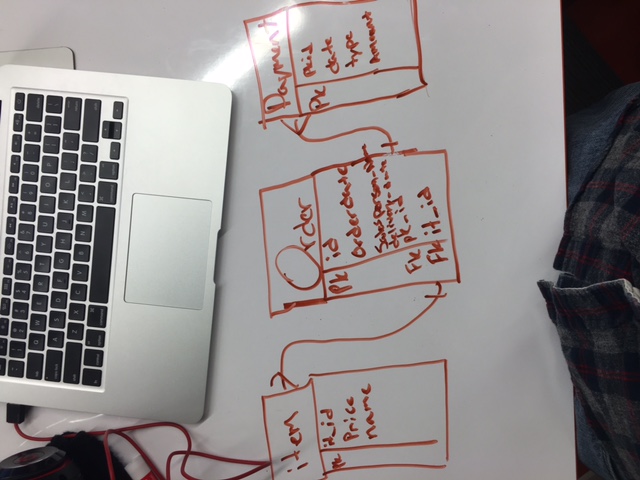 item
PK it_id
Price
name
Order
PK id
Orderdate
Salesperson_Name
delivery_date
FK pk_id
FK it_id
Payment
PK PKid
date
type
Amount